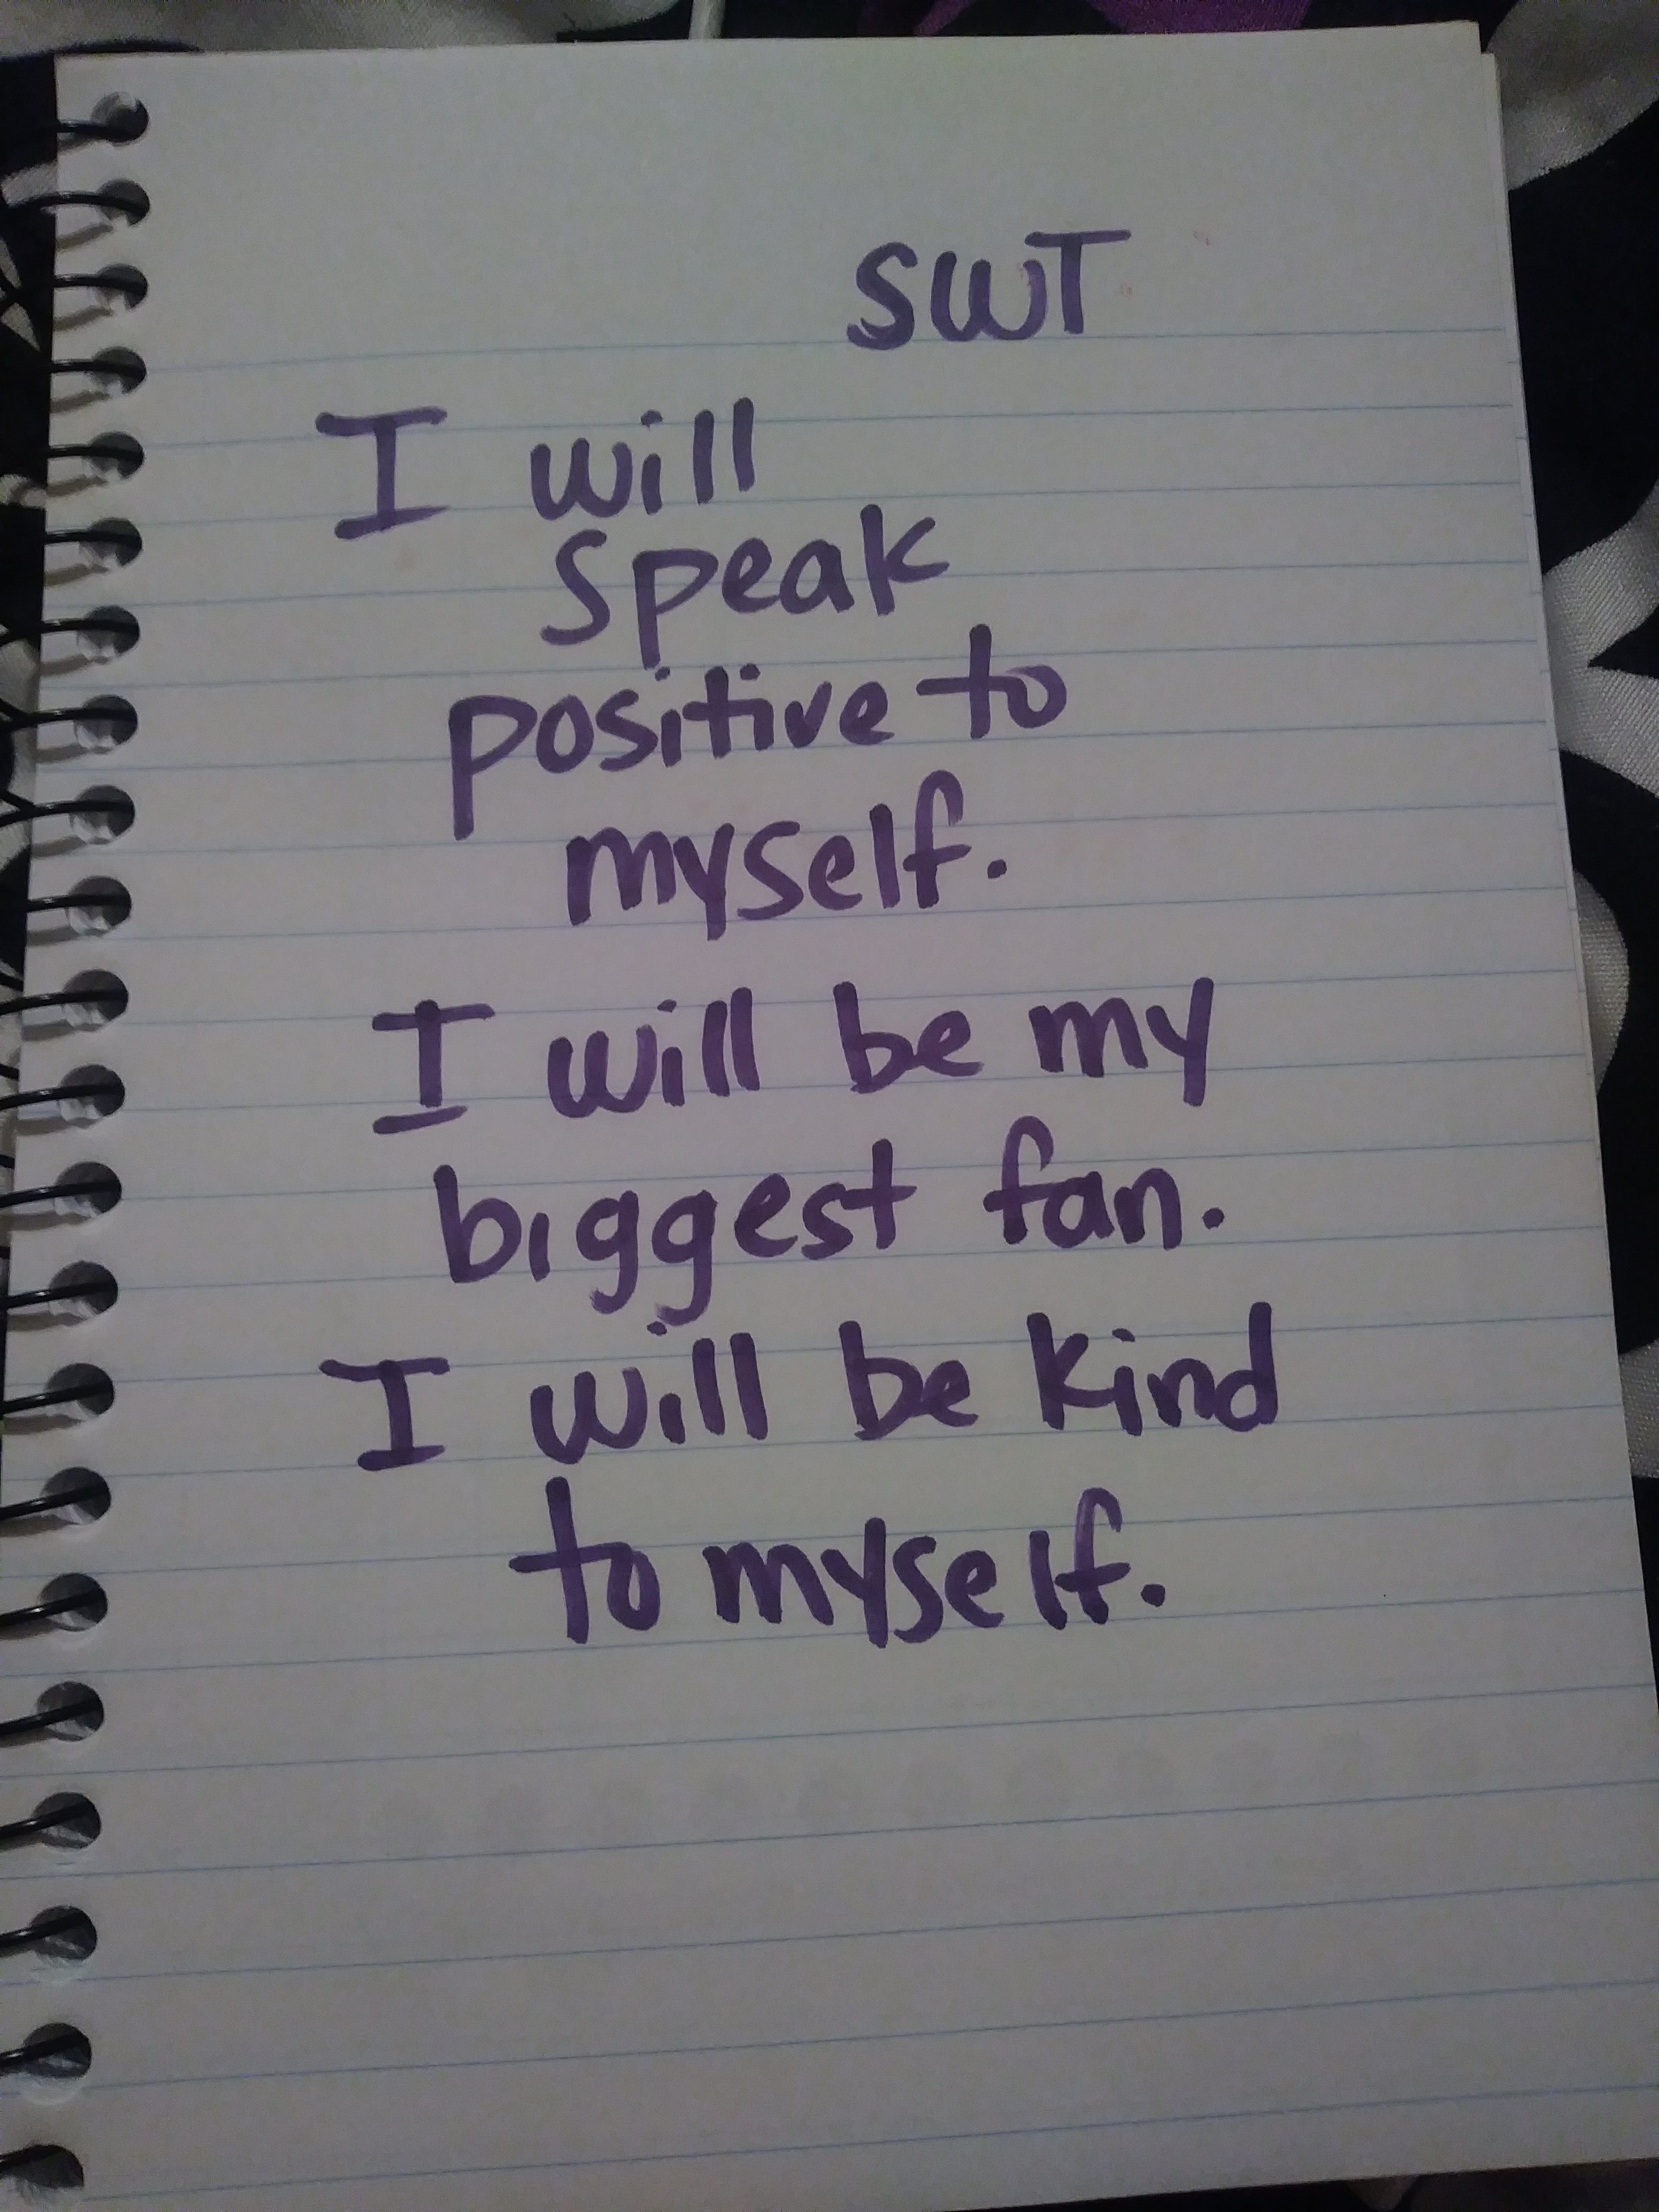 SWT
I will
speak
positive to
myself.
I will be my
biggest fan.
I will be kind
to myself.